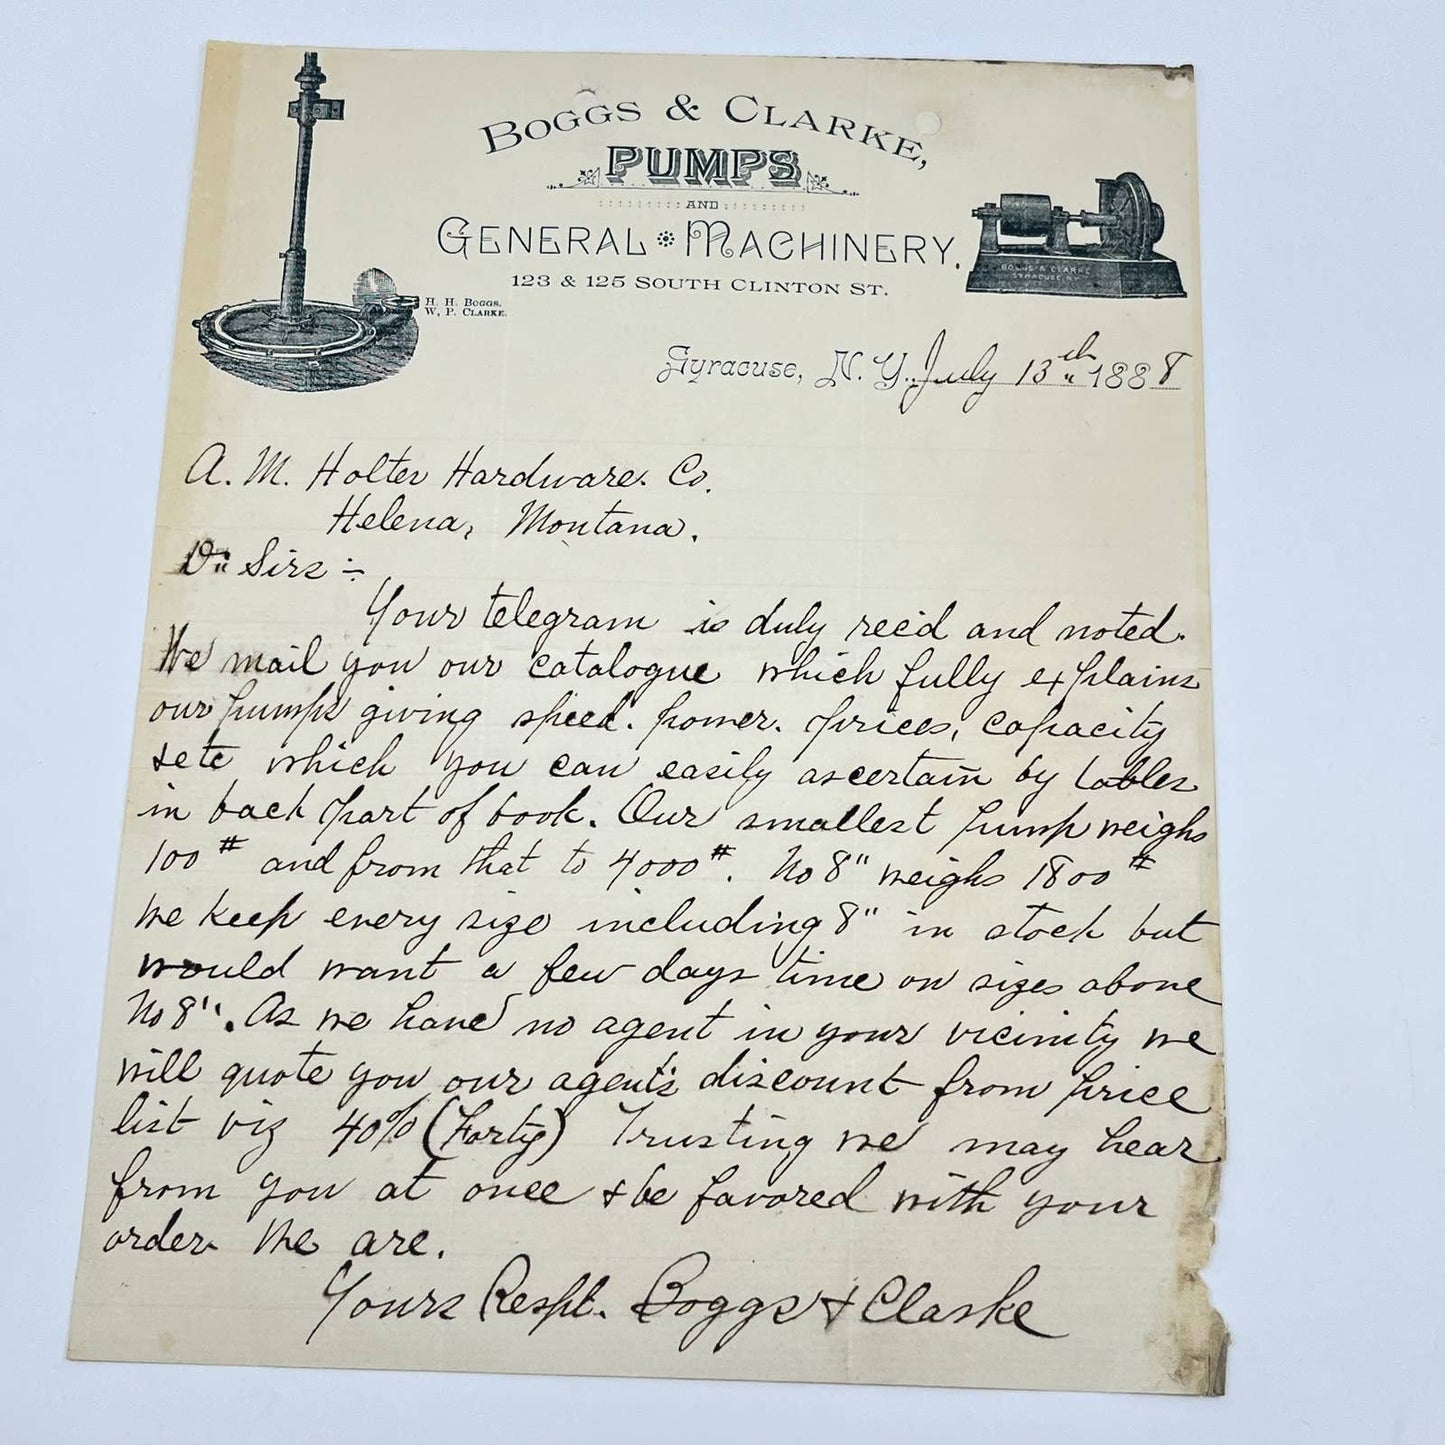 BOGGS & CLARKE,
PUMPS
AND
GENERAL MACHINERY.
123 & 125 SOUTH CLINTON ST.
H. H. BOGGS.
W. P. CLARKE.
BOGGS & CLARKE
SYRACUSE N.Y.
Syracuse, N. Y. July 13th 1888
A. M. Holter Hardware. Co.
Helena, Montana.
Dr Sirs :-
Your telegram is duly rec'd and noted.
We mail you our catalogue which fully explains
our pumps giving speed. power. prices, capacity
&etc which you can easily ascertain by tables
in back part of book. Our smallest pump weighs
100 # and from that to 4000 #. No 8" weighs 1800 #
We keep every size including 8" in stock but
would want a few days time on sizes above
No 8". As we have no agent in your vicinity we
will quote you our agent's discount from price
list viz 40% (Forty) Trusting we may hear
from you at once & be favored with your
order We are.
Yours Respt. Boggs & Clarke